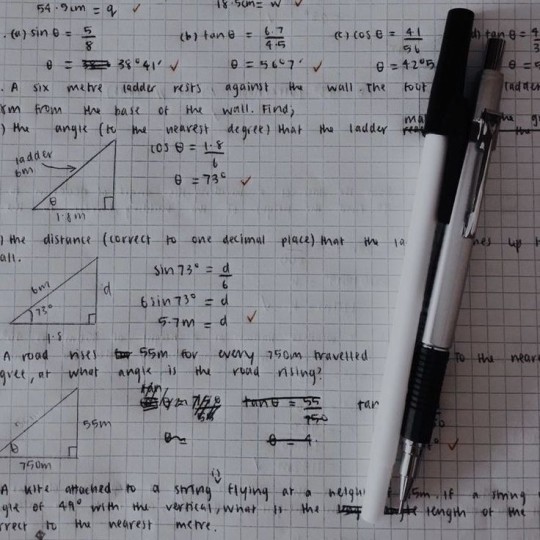 54.9cm = q ✓ 18.5cm = w ✓
(a) sin θ = 5/8 (b) tan θ = 6.7/4.5 (c) cos θ = 41/56 d) tan θ =
θ = 38°41' ✓ θ = 56°7' ✓ θ = 42°5 θ =
A six metre ladder rests against the wall. The foot ladder
8m from the base of the wall. Find,
) the angle (to the nearest degree) that the ladder
ladder 6m θ 1.8m
cos θ = 1.8/6
θ = 73° ✓
) the distance (correct to one decimal place) that the up
all.
6m 73° d 1.8
sin 73° = d/6
6 sin 73° = d
5.7m = d ✓
A road rises 55m for every 750m travelled to the
gree, at what angle is the road rising?
tan θ = 55/750 tan
θ = 4 ✓
θ 55m 750m
A kite attached to a string flying at a height 15m. If a string
gle of 49° with the vertical, what is the length of the
rrect to the nearest metre.